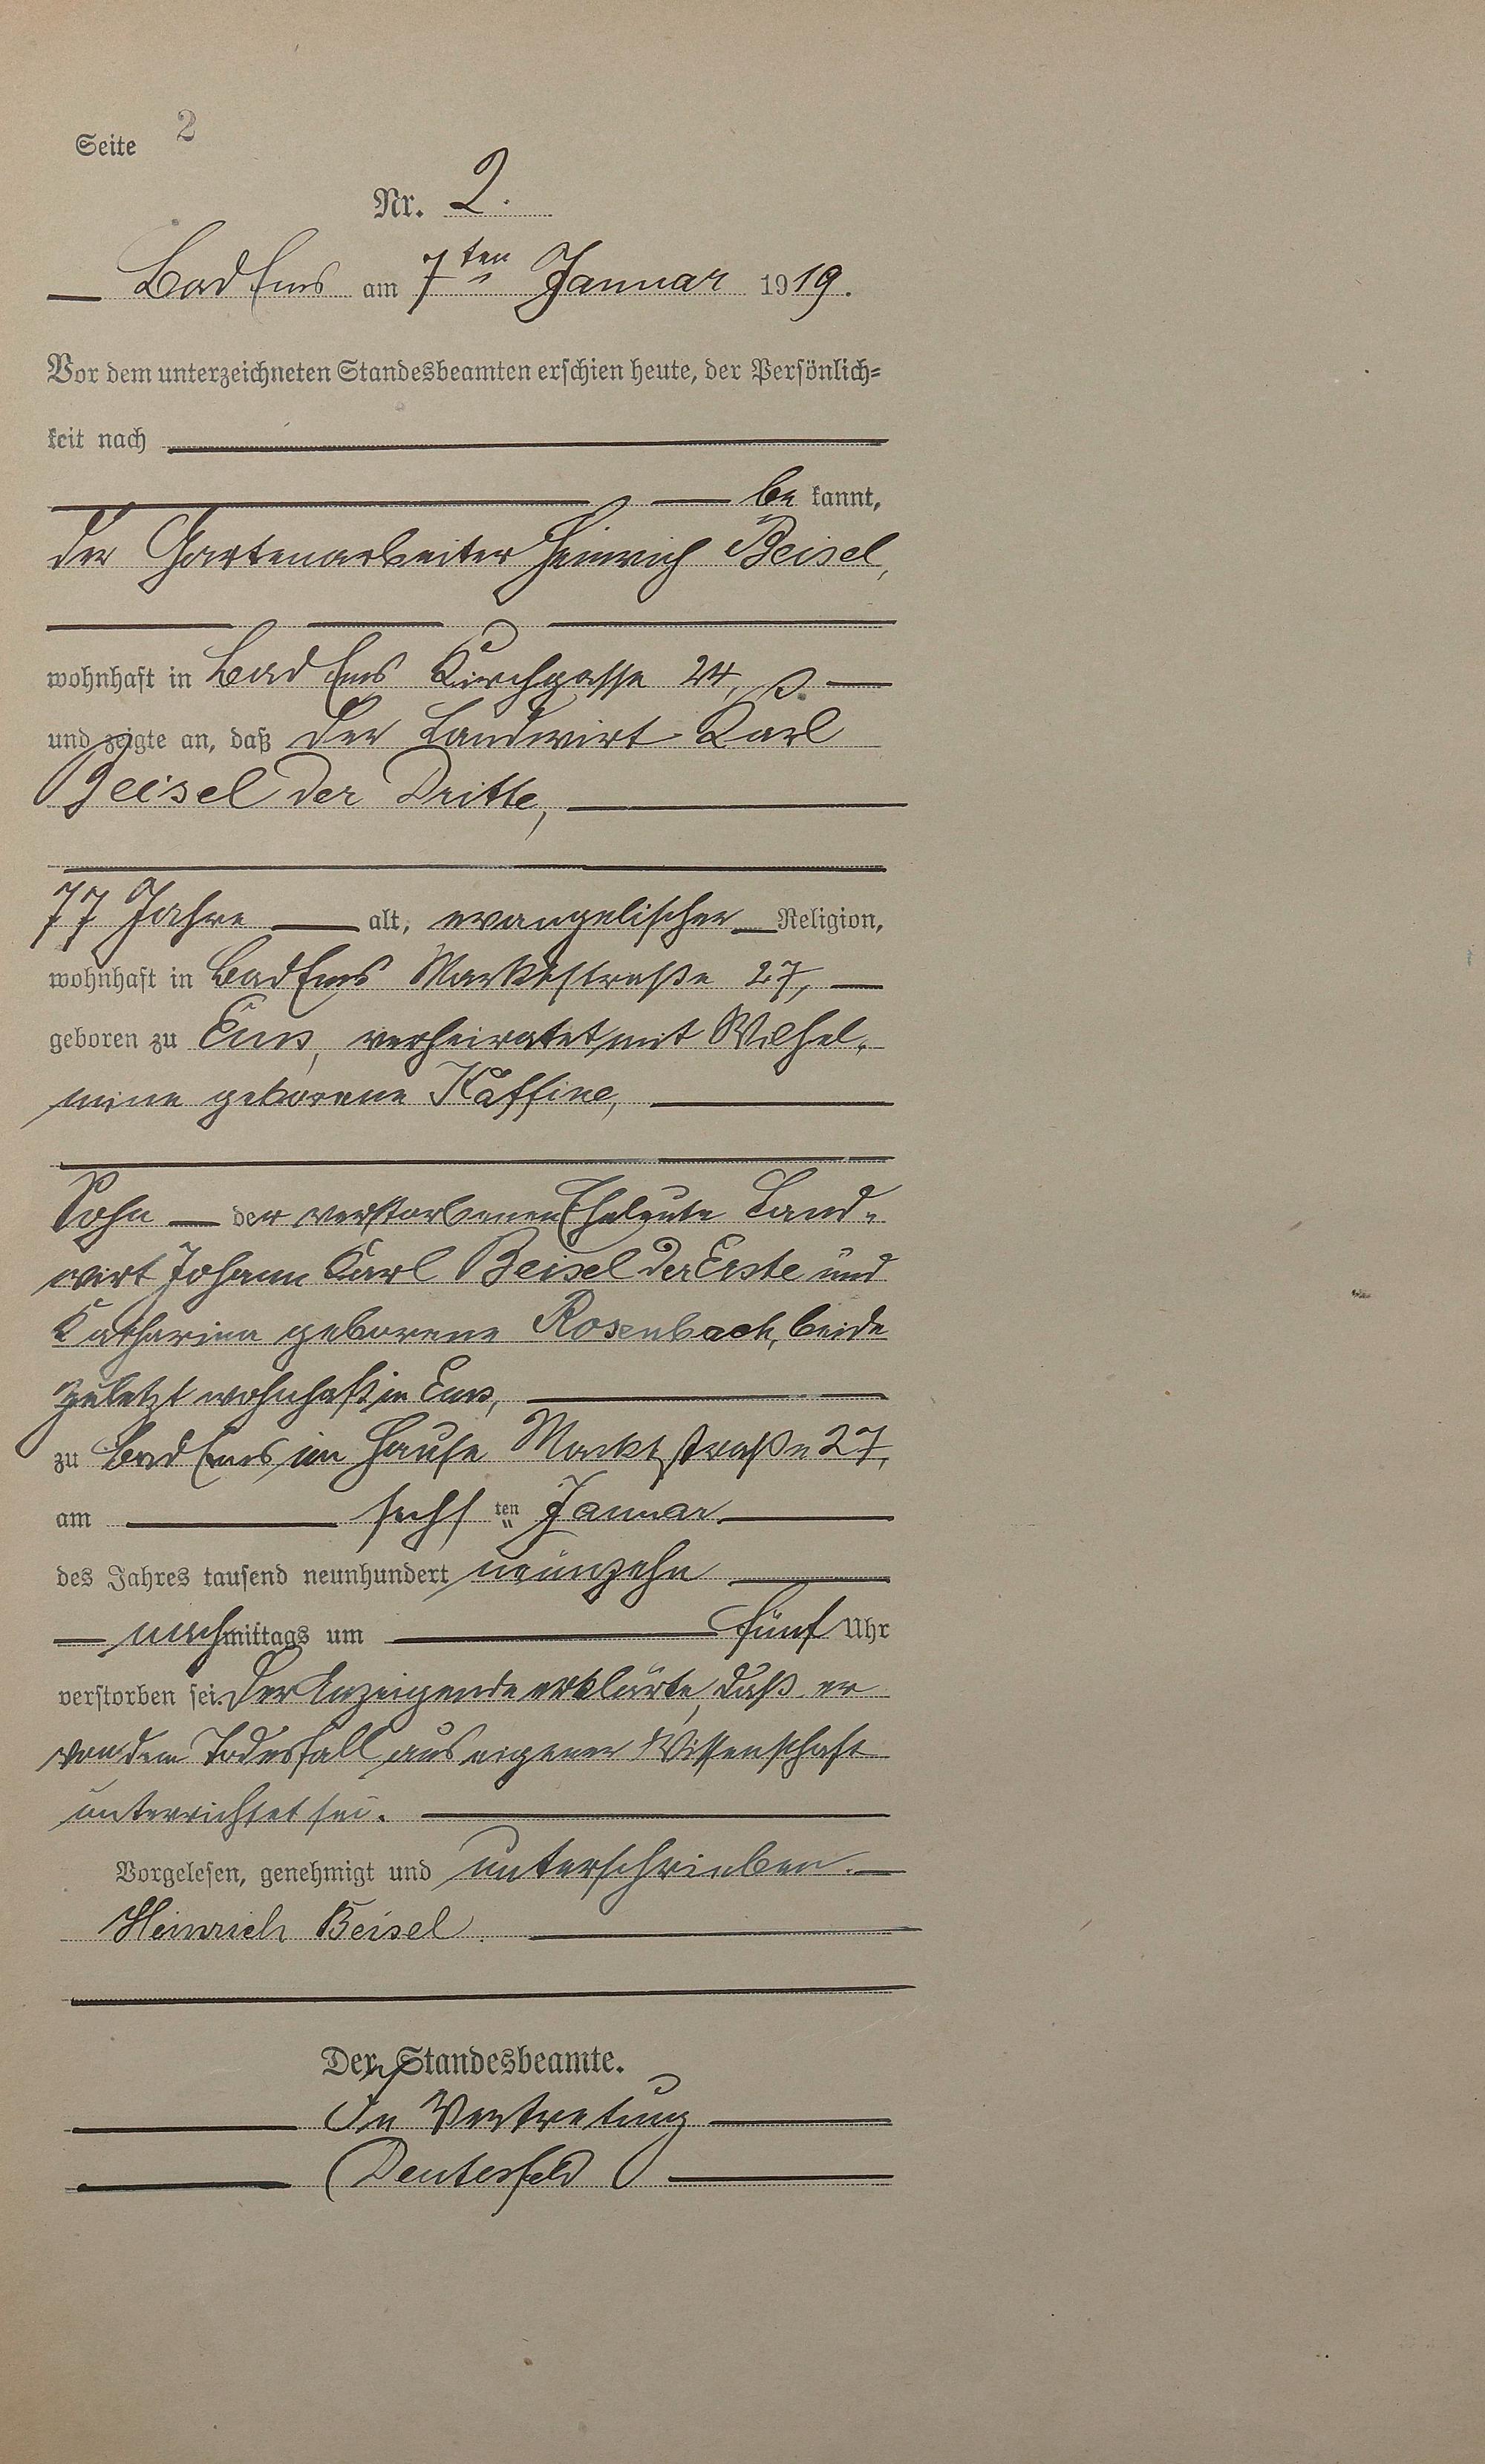 Seite 2
Nr. 2.
Bad Ems am 7ten Januar 1919.
Vor dem unterzeichneten Standesbeamten erschien heute, der Persönlich=
keit nach
be kannt,
der Gartenarbeiter Heinrich Beisel,
wohnhaft in Bad Ems Kirchgasse 24,
und zeigte an, daß der Landwirt Karl
Beisel der Dritte,
77 Jahre alt, evangelischer Religion,
wohnhaft in Bad Ems Marktstraße 27,
geboren zu Ems, verheiratet mit Wilhel-
mine geborene
Sohn der verstorbenen Eheleute Land-
wirt Johann Karl Beisel der Erste und
Katharina geborene Rosenbach, beide
zuletzt wohnhaft in Ems,
zu Bad Ems im Hause Marktstraße 27,
am sechsten Januar
des Jahres tausend neunhundert neunzehn
nachmittags um fünf Uhr
verstorben sei. Der Anzeigende erklärte, daß er
von dem Todesfall aus eigener Wissenschaft
unterrichtet sei.
Vorgelesen, genehmigt und unterschrieben.
Heinrich Beisel.
Der Standesbeamte.
In Vertretung